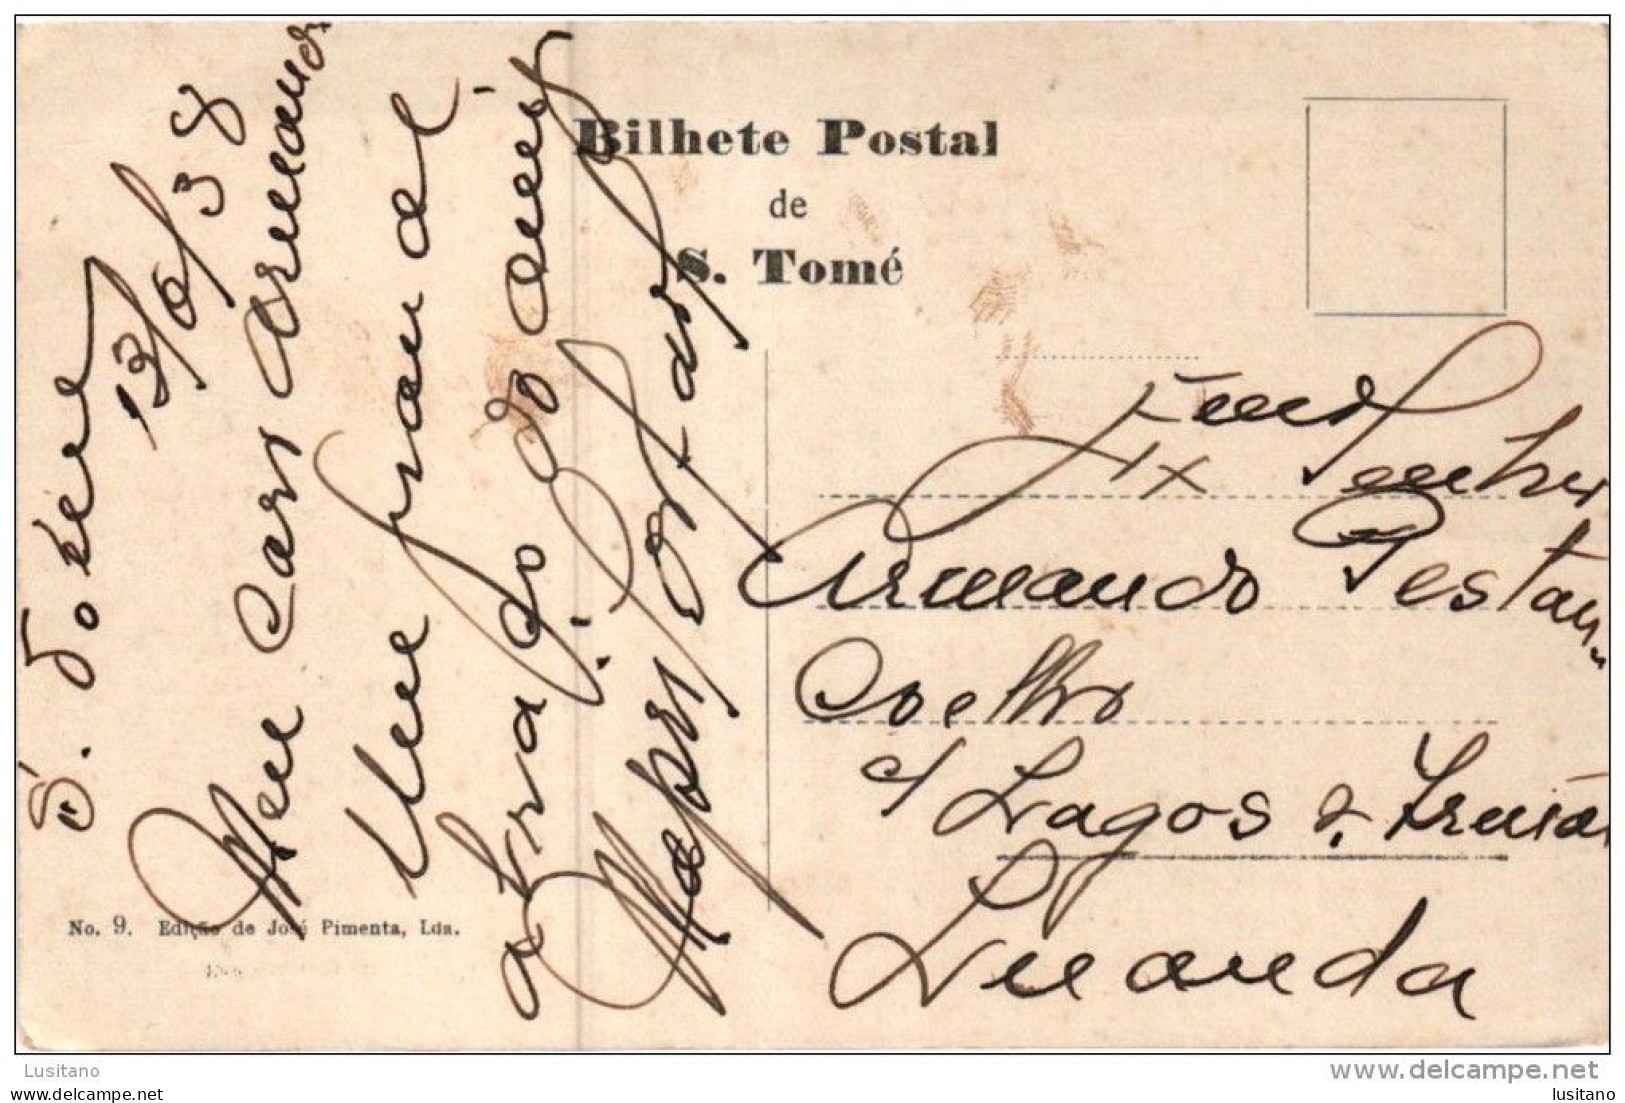 Bilhete Postal
de
S. Tomé
S. Tomé
13/6/38
Meu caro Armando
Um grande
abraço do amigo
Exmo Senhor
Armando Pestana
Coelho
c/ Lagos & Irmão
Luanda
No. 9. Edição de José Pimenta, Lda.
Lusitano
www.delcampe.net
lusitano
lusitano